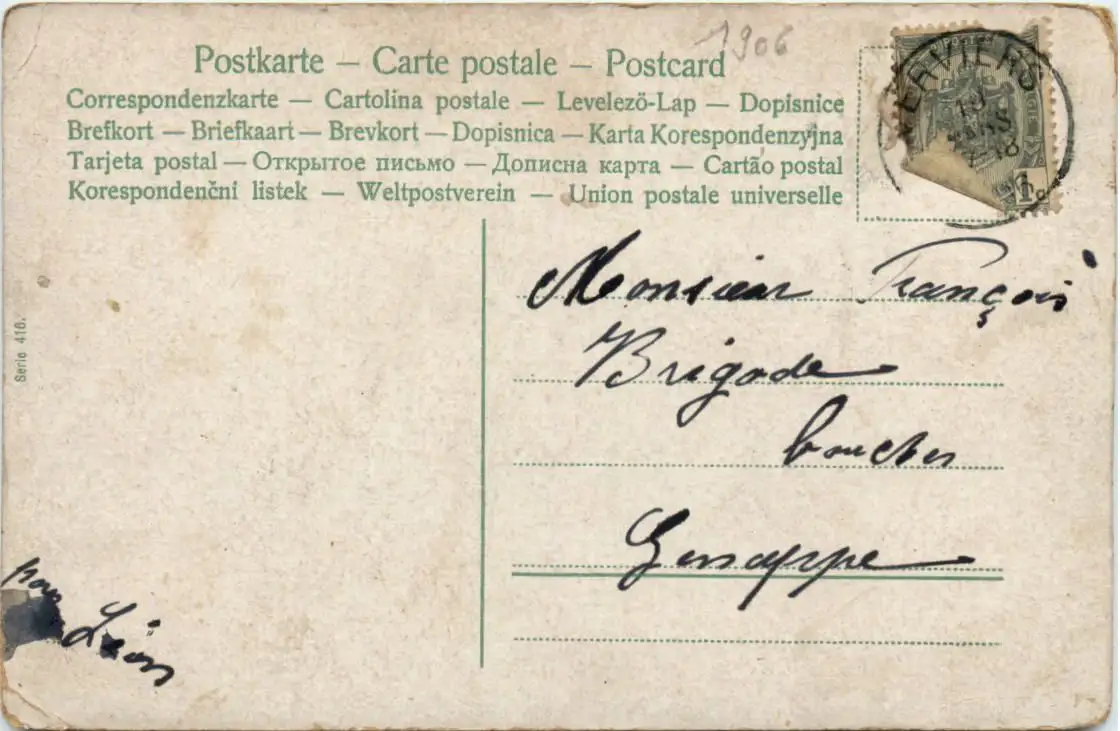 1906
Postkarte – Carte postale – Postcard
Correspondenzkarte – Cartolina postale – Levelező-Lap – Dopisnice
Brefkort – Briefkaart – Brevkort – Dopisnica – Karta Korespondenzyjna
Tarjeta postal – Открытое письмо – Дописна карта – Cartão postal
Korespondenční listek – Weltpostverein – Union postale universelle
VERVIERS
19
MARS
1c
Monsieur François
Brigode
boucher
Genappe
Serie 416.
pour
Léon